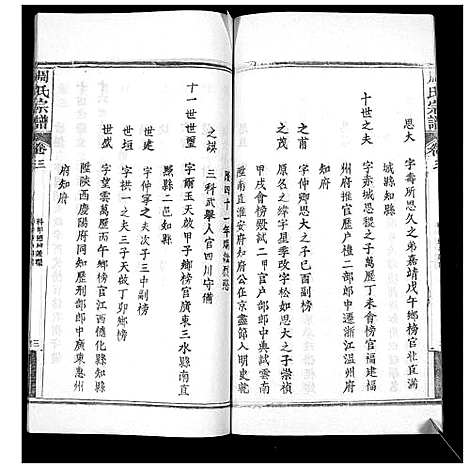 周氏宗譜
卷三
思大
字壽所思久之弟嘉靖戊午鄉榜官北直滿
城縣知縣
十世之夫
字赤城思鰲之子萬曆丁未會榜官福建福
州府推官歷戶樓二部郎中遷浙江溫州府
知府
之茂
字石仲卿思夫之子己酉副榜
之屏
原名之緯字星拱改字松如思大之子崇禎
甲戌會榜二甲官戶部郎中典試雲南
陞淮安府知府公在京盡節入明史載
雲南通志
十一世世璽
字爾玉天啟甲子鄉榜官廣東三水縣南直
黟縣二邑知縣
之謨
三科武舉人官四川守備
世建
字仲寧之夫次子三中副榜
世拱
字拱一之夫三子天啟丁卯鄉榜
世盛
字 萬曆丙午鄉榜官江西德化縣知縣
陞陝西慶陽府同知歷刑部郎中廣東惠州
府知府
周氏宗譜
卷三
三